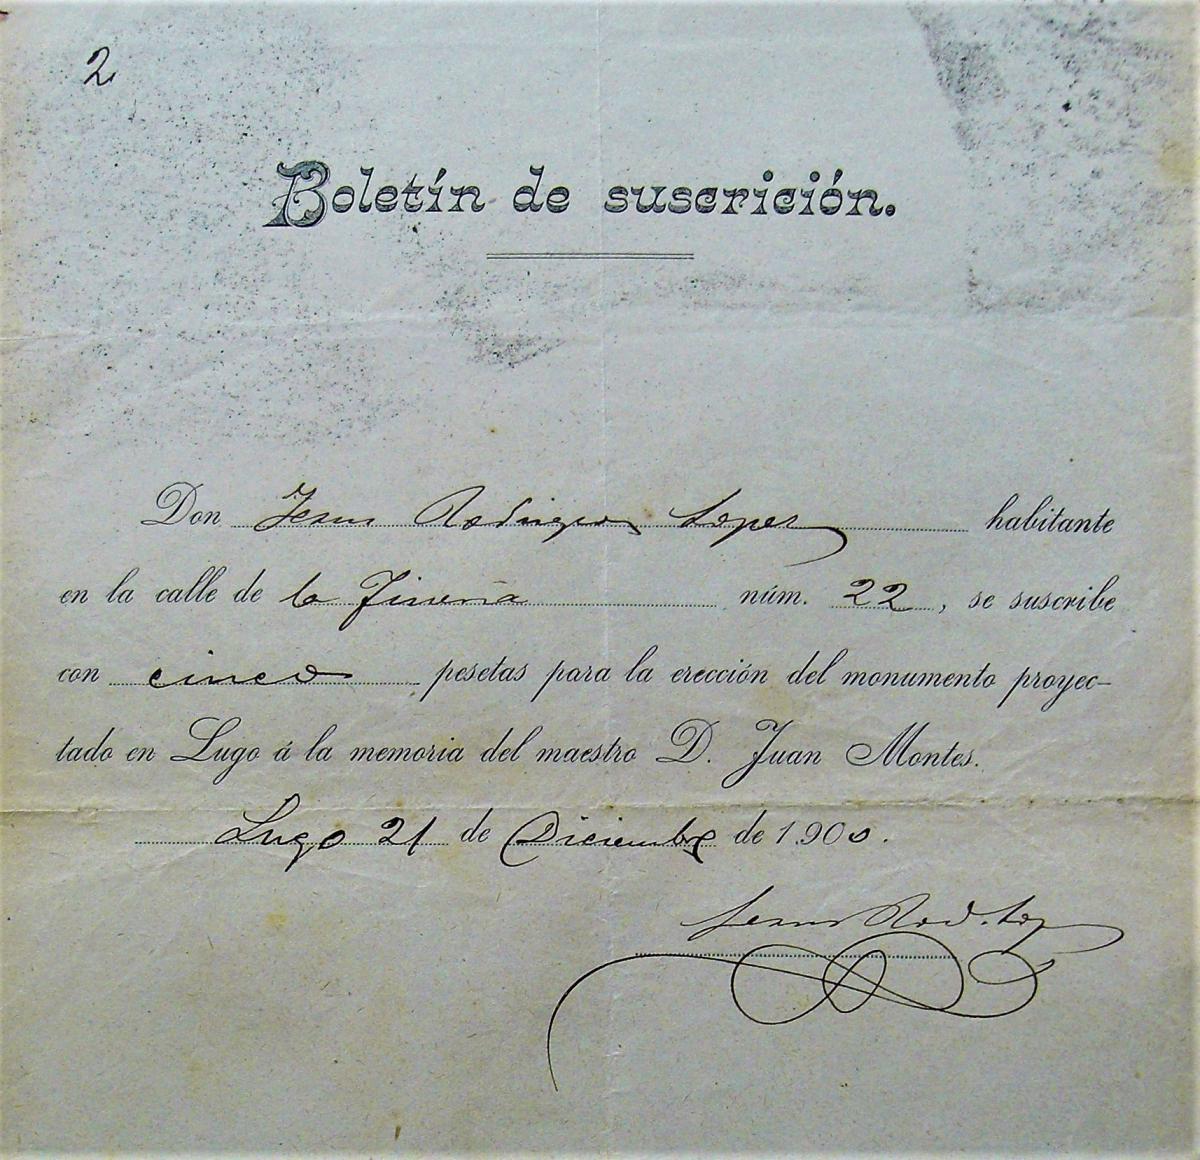 2
Boletín de suscrición.
Don Jesus Rodriguez Lopez habitante
en la calle de la Tineria núm. 22, se suscribe
con cinco pesetas para la erección del monumento proyec-
tado en Lugo á la memoria del maestro D. Juan Montes.
Lugo 21 de Diciembre de 1.900.
Jesus Rod. Lop